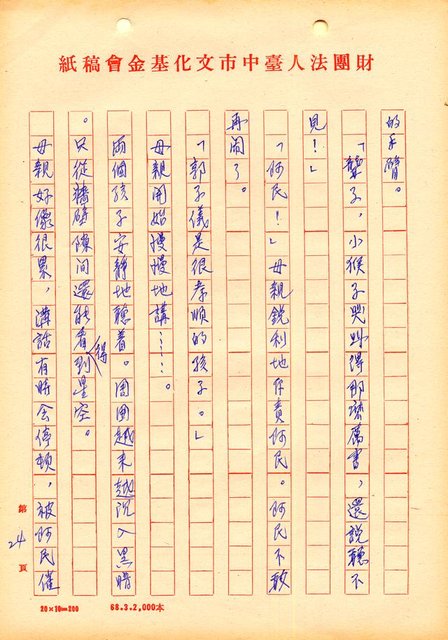 財團法人臺中市文化基金會稿紙
的手臂。
「聾子，小猴子哭叫得那麼厲害，還說聽不
見！」
「阿民！」母親銳利地斥責阿民。阿民不敢
再鬧了。
「郭子儀是很孝順的孩子。」
母親開始慢慢地講……。
兩個孩子安靜地聽着。周圍越來越沉入黑暗
。只從牆壁隙間還能看得到星空。
母親好像很累，講話有時会停頓，被阿民催
第24頁
20×10=200
68.3.2,000本